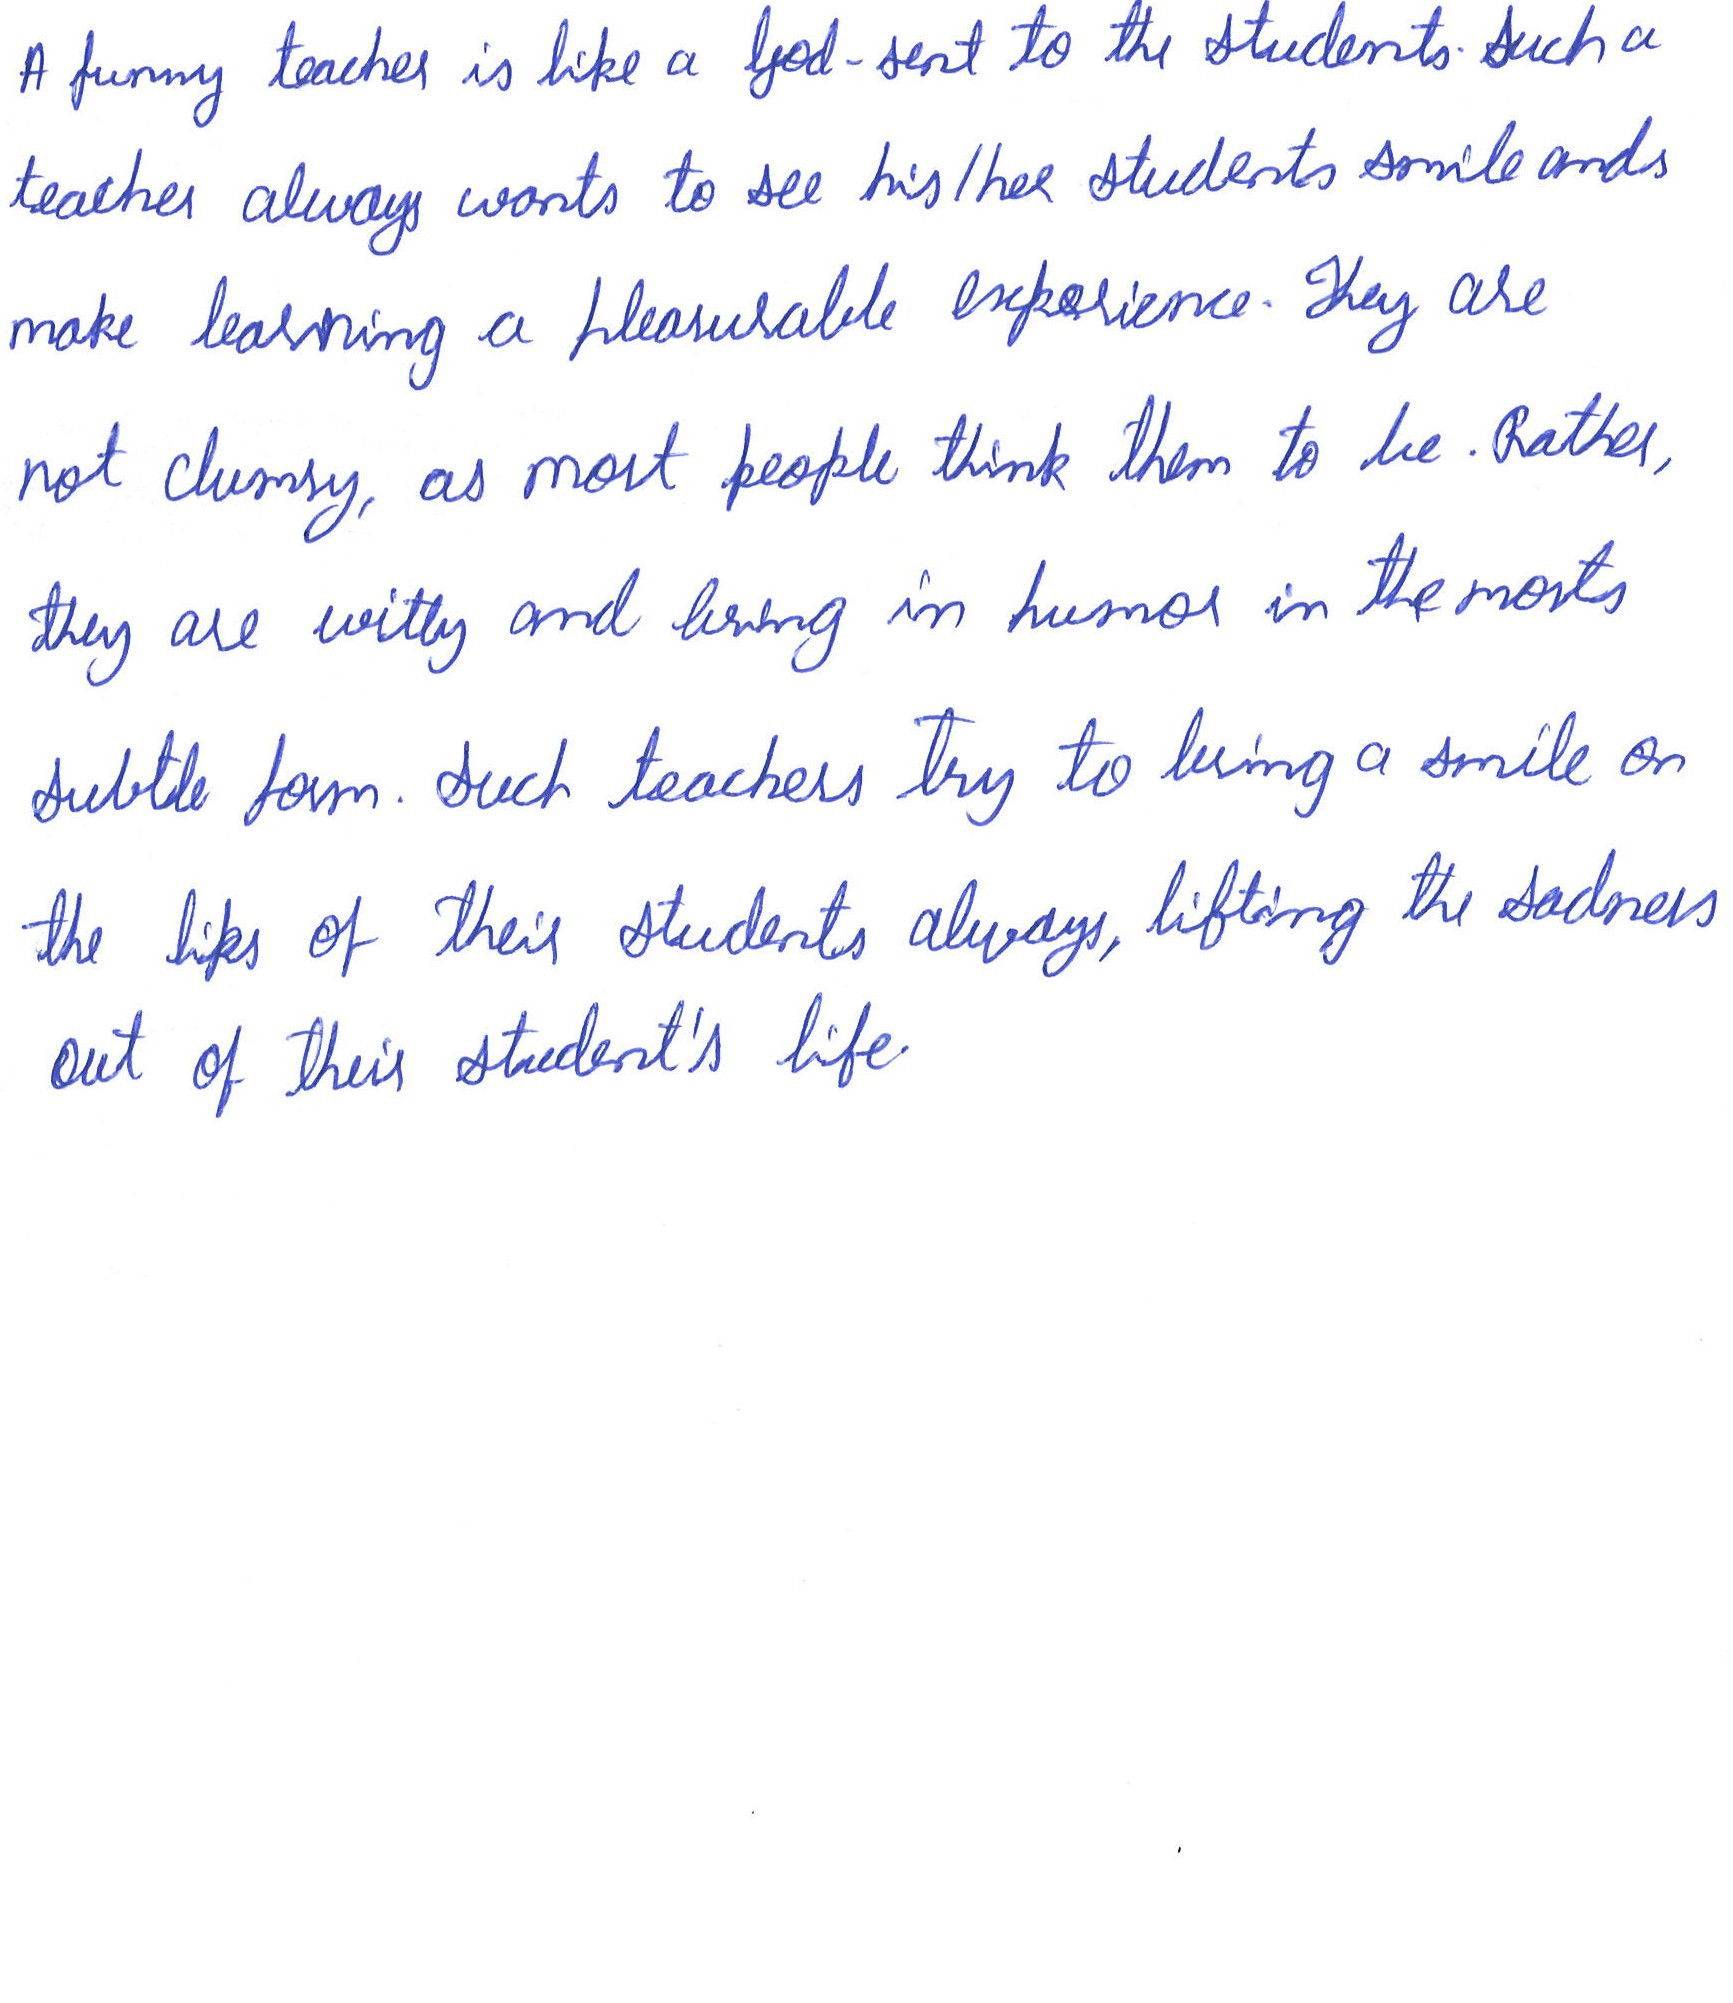 A funny teacher is like a God-sent to the students. Such a
teacher always wants to see his/her students smile ands
make learning a pleasurable experience. They are
not clumsy, as most people think them to be. Rather,
they are witty and bring in humor in the mosts
subtle form. Such teachers try to bring a smile on
the lips of their students always, lifting the sadness
out of their student's life.